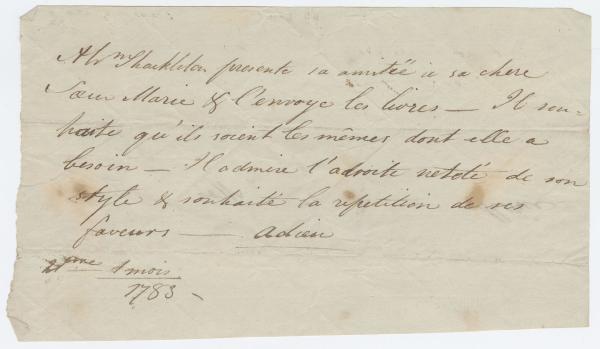 Abm Shackleton presente sa amitée à sa chere
Sœur Marie & l'envoye les livres — Il sou=
haite qu'ils soient les mêmes dont elle a
besoin — Il admire l'adroite neteté de son
style & souhaité la repetition de ses
faveurs — adieu
1 mois
1783 —